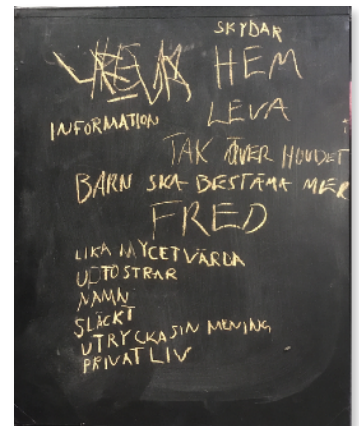 SKYDAR
HEM
LEVA
INFORMATION
TAK ÖVER HUVDET
BARN SKA BESTÄMA MER
FRED
LIKA MYCET VÄRDA
UPTOSTRAR
NAMN
SLÄCKT
UTRYCKA SIN MENING
PRIVAT LIV